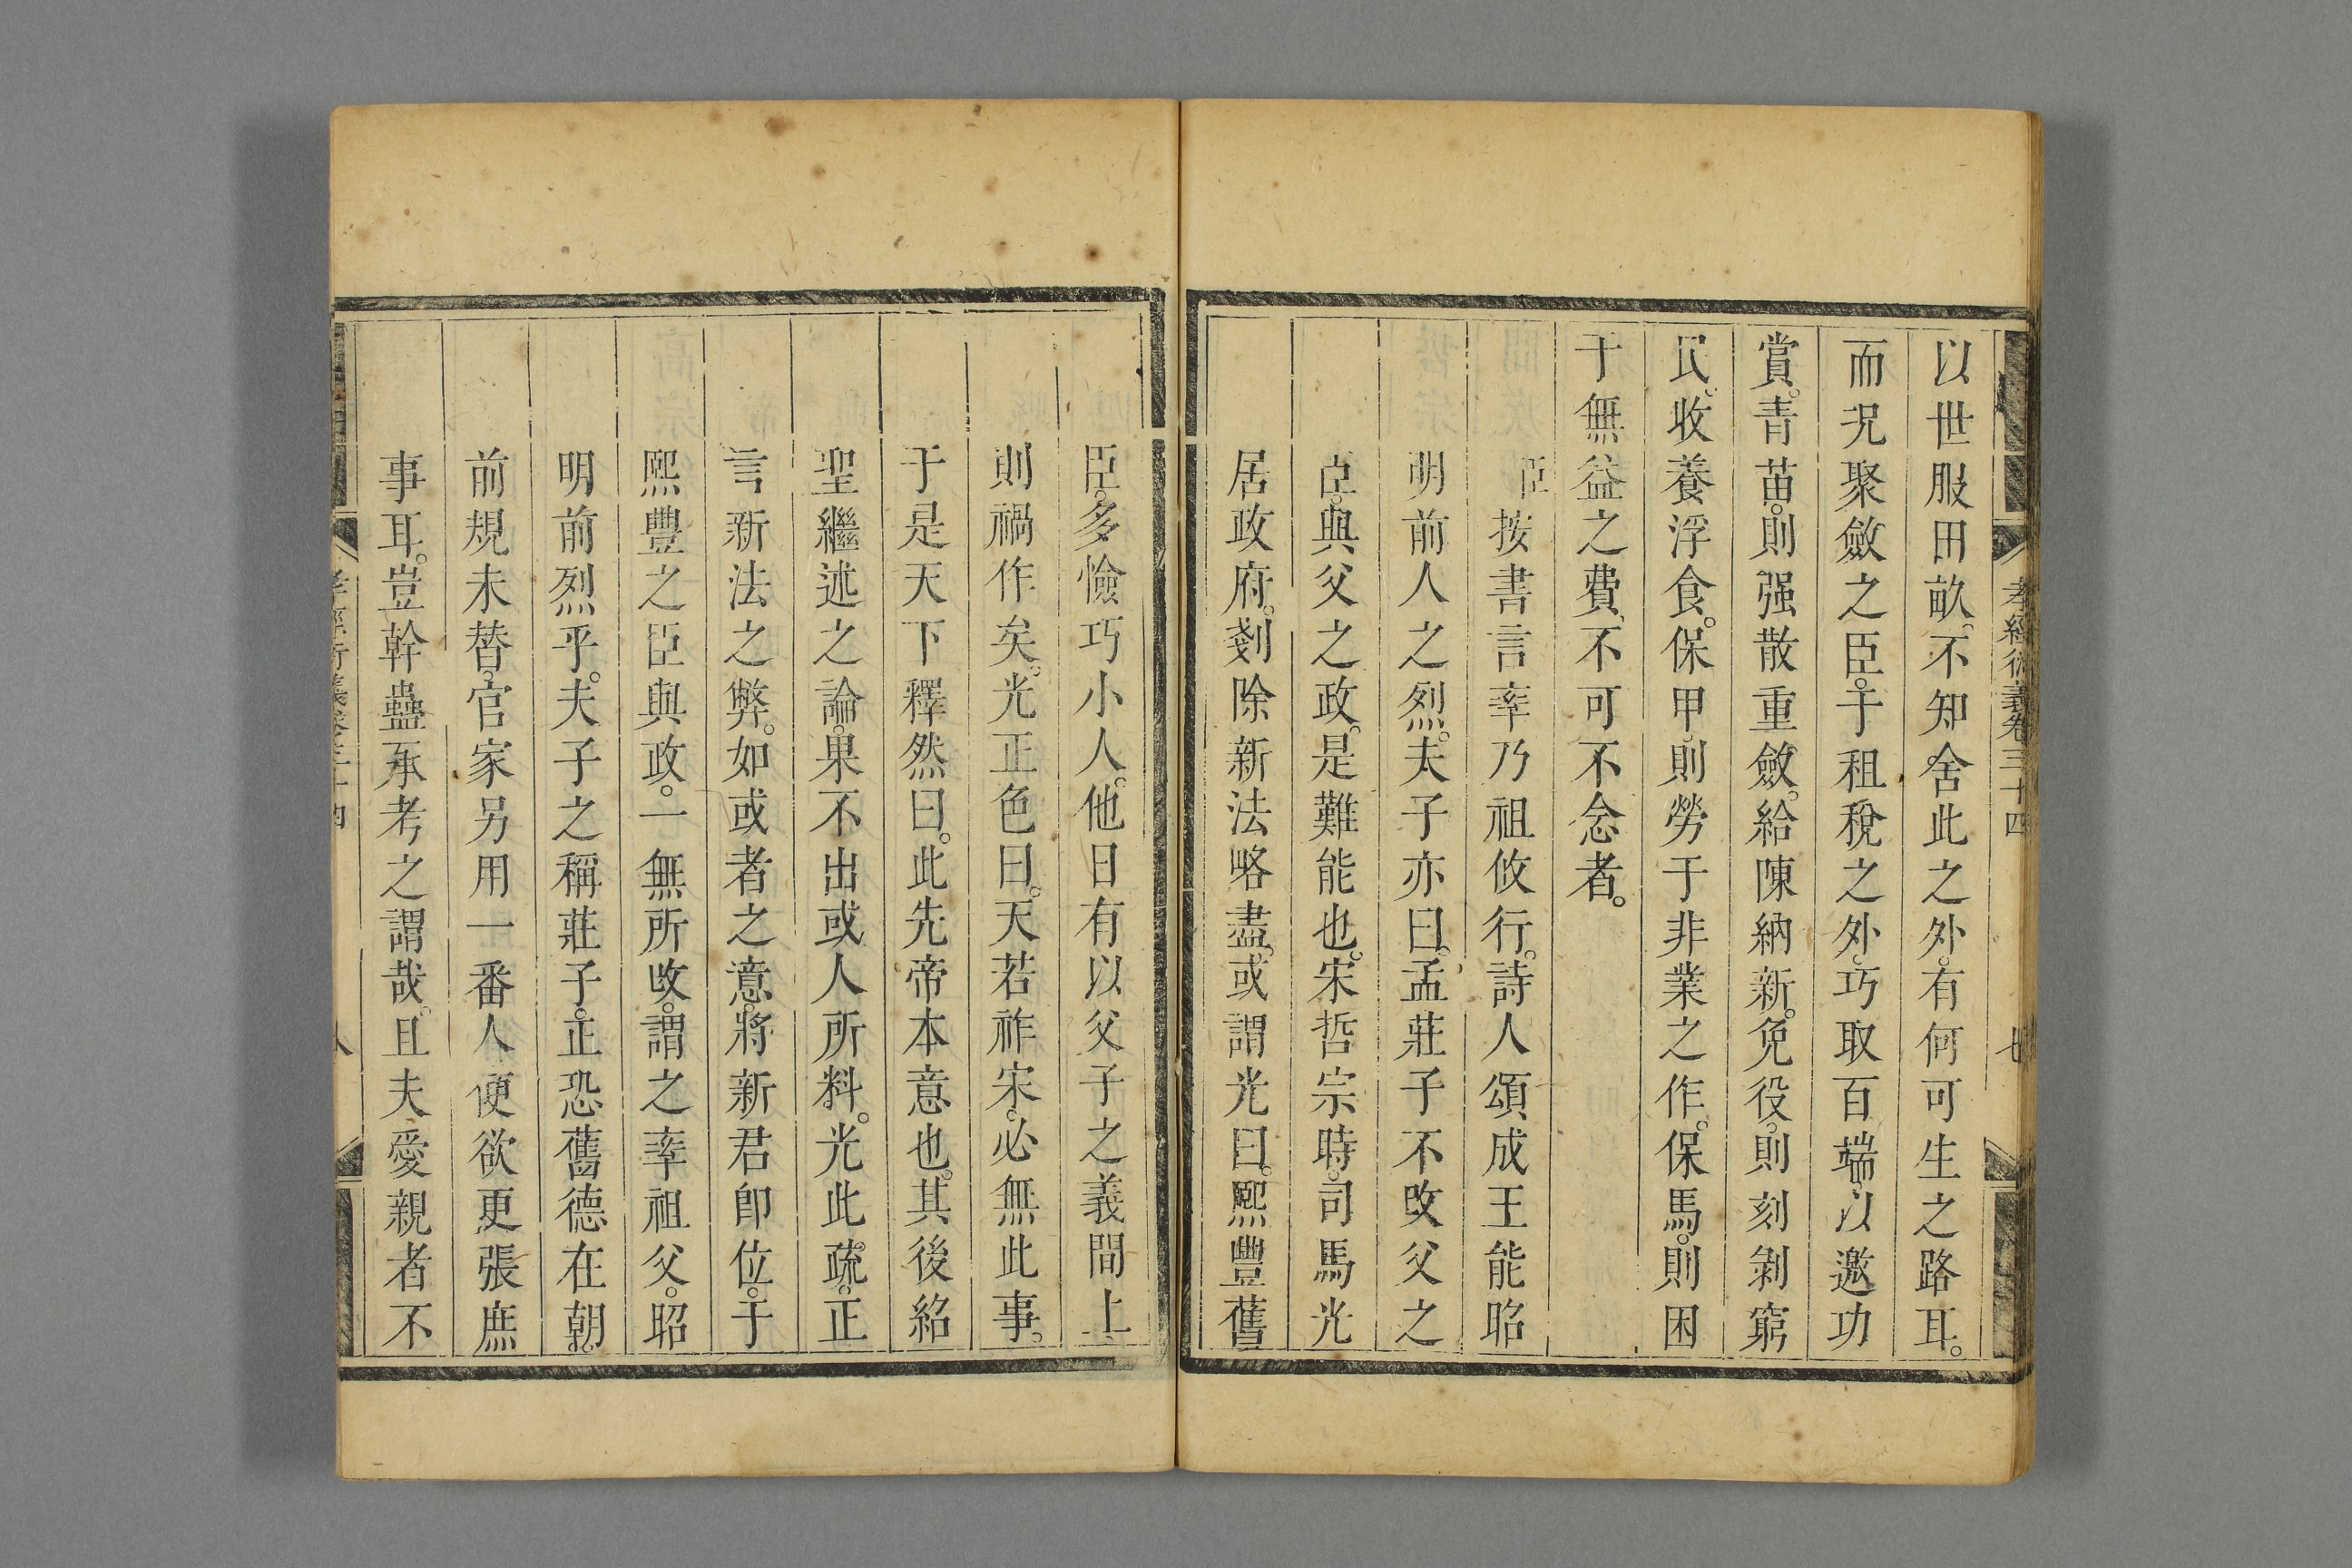 孝經衍義卷三十四 七
以世服田畝。不知舍此之外。有何可生之路耳。
而况聚斂之臣。于租稅之外。巧取百端。以邀功
賞。青苗。則强散重斂。給陳納新。免役。則刻剝窮
民。收養浮食。保甲。則勞于非業之作。保馬。則困
于無益之費、不可不念者。
臣按書言率乃祖攸行。詩人頌成王能昭
明前人之烈。夫子亦曰。孟莊子不改父之
臣。與父之政。是難能也。宋哲宗時。司馬光
居政府。剗除新法略盡。或謂光曰。熙豐舊
臣。多憸巧小人。他日有以父子之義間上、
則禍作矣。光正色曰。天若祚宋。必無此事。
于是天下釋然曰。此先帝本意也。其後紹
聖繼述之論。果不出或人所料。光此疏。正
言新法之弊。如或者之意。將新君卽位。于
熙豐之臣與政。一無所改。謂之率祖父。昭
明前烈乎。夫子之稱莊子。正恐舊德在朝。
前規未替。官家另用一番人。便欲更張庶
事耳。豈幹蠱承考之謂哉。且夫愛親者不
孝經衍義卷三十四 八